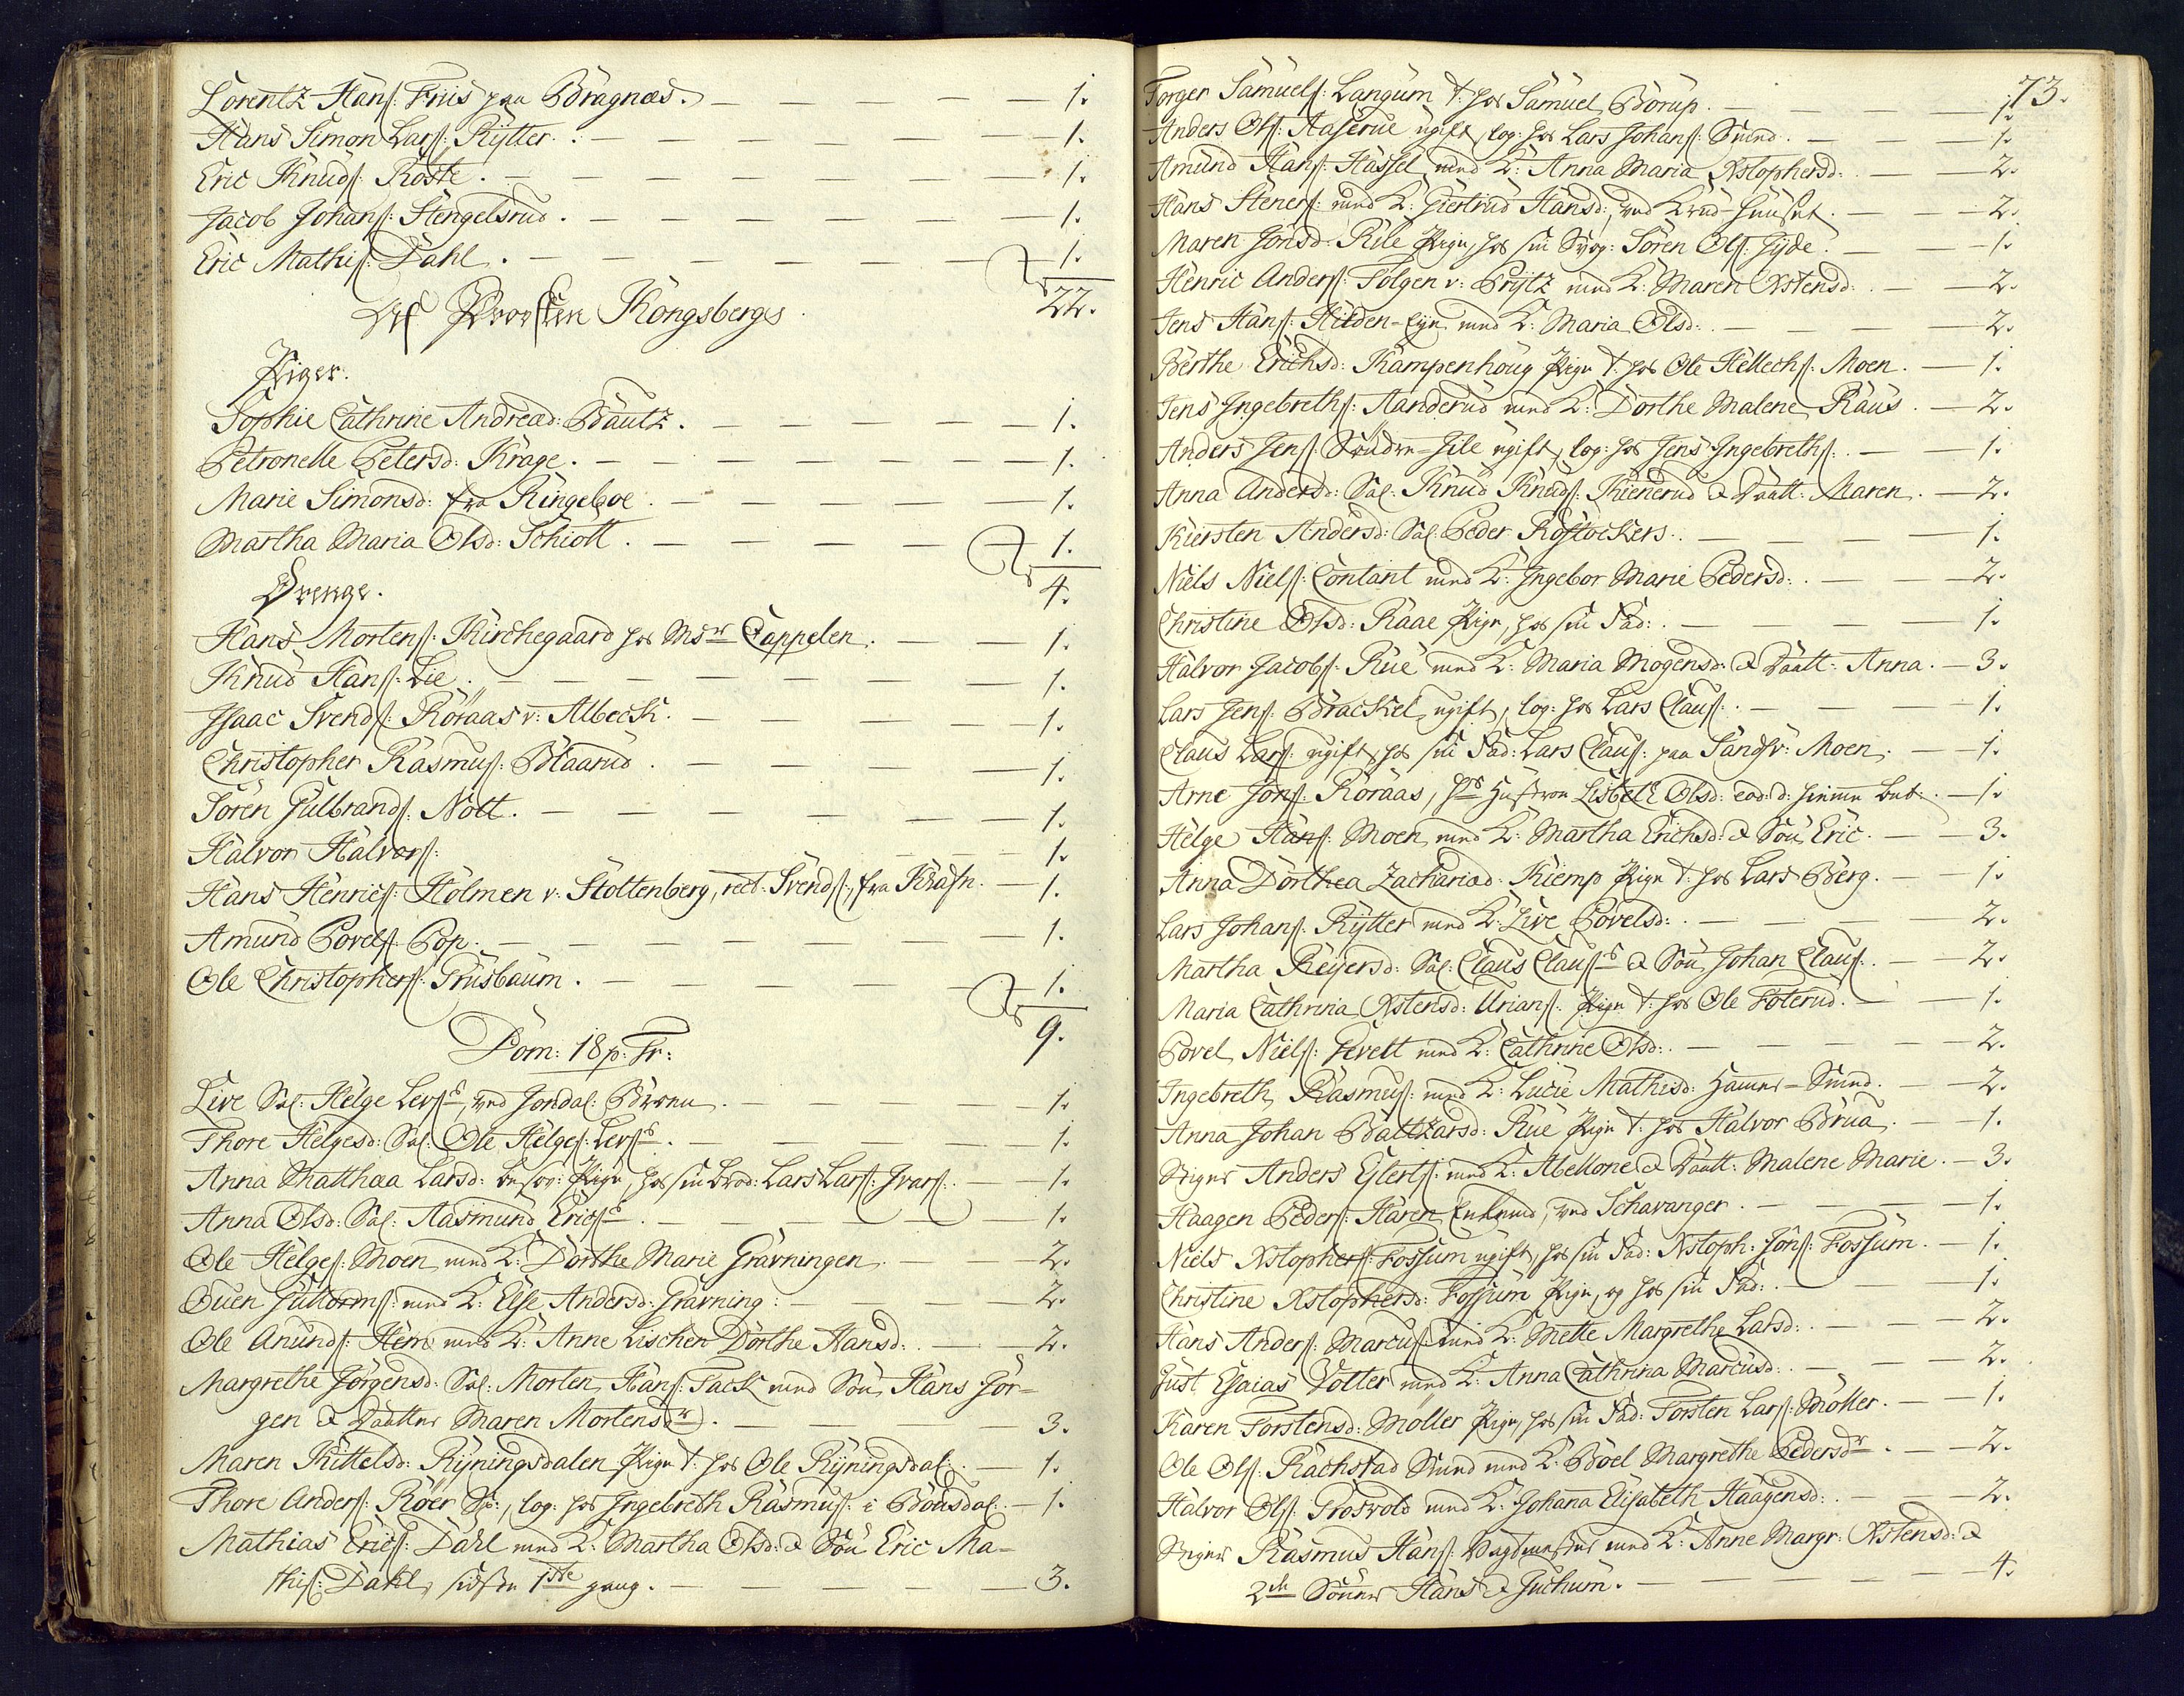 Lorentz Hanſ: Friis paa Bragnæs. — 1.
Hans Simon Larſ: Rytter. — 1.
Eric Knudſ: Röste. — 1.
Jacob Johanſ: Stengelsrud. — 1.
Eric Mathiſ: Dahl. — 1.
22.
Kongsberg
Piger.
Sophie Cathrine Andread: Bautz. — 1.
Petronelle Petersd: Krage. — 1.
Marie Simonsd: fra Ringeboe. — 1.
Martha Maria Olsd: Schiött. — 1.
4.
Drenge.
Hans Mortenſ: Kirchegaard hos Msr Cappelen. — 1.
Knud Hanſ: Lie. — 1.
Isaac Svendſ: Röraas v: Albeck. — 1.
Christopher Rasmuſ: Blaarud. — 1.
Sören Gulbrandſ: Nött. — 1.
Halvor Halvorſ: — 1.
Hans Henricſ: Holmen v: Stoltenberg, rect: Svendſ:, fra — 1.
Amund Povelſ: Pop. — 1.
Ole Christopherſ: Grüsbaum. — 1.
9.
Dom: 18 p: Tr:
Live Sal: Helge Lerſs, ved Jondal: Broen. — 1.
Thore Helgesd: Sal: Ole Helgeſ: Lerſs. — 1.
Anna Matthæa Larsd: Pige, hos sin Brod: Lars Larſ: Ivarſ: — 1.
Anna Olsd: Sal: Aasmund Ericſs. — 1.
Ole Helgeſ: Moen med K: Dorthe Marie Gravningen. — 2.
Ouen Guttormſ: med K: Else Andersd: Gravning: — 2.
Ole Anundſ: Hem med K: Anne Lischen Dorthe Hansd: — 2.
Margrethe Jörgensd: Sal: Morten Hanſ: Fack med Sön Hans Jör-
gen & Daatter Maren Mortensdr. — 3.
Maren Kittelsd: Ryningsdalen Pige t: hos Ole Ryningsdal. — 1.
Thore Anderſ: Röer, log: hos Ingebreth Rasmuſ: i — 1.
Mathias Ericſ: Dahl med K: Martha Olsd: & Sön Eric Ma-
thiſ: Dahl, sidste 1ste gang. — 3.
73.
Torger Samuelſ: Langum t: hos Samuel Borup. — 1.
Anders Olſ: Aaserue ugift, log: hos Lars Johanſ: Smed. — 1.
Amund Hanſ: Hassel med K: Anna Maria Xstophersd: — 2.
Hans Stenerſ: med K: Giertrud Hansd:, ved Krud-Huuset. — 2.
Maren Jonsd: Kile Pige, hos sin Svog: Sören Olſ: Gyde. — 1.
Henric Anderſ: Folgen v: Prytz med K: Maren Xstensd: — 2.
Jens Hanſ: med K: Maria Olsd: — 2.
Berthe Erichsd: Kampenhoug Pige t: hos Ole Hellechſ: Moen. — 1.
Jens Ingebrethſ: Aanderud med K: Dorthe Malene Raus. — 2.
Anders Jenſ: ugift, log: hos Jens Ingebrethſ: — 1.
Anna Andersd: Sal: Knud Knudſ: Kienerud & Daatt: Maren. — 2.
Kiersten Andersd: Sal: Peder Rostockers. — 1.
Niels Nielſ: Contant med K: Ingebor Marie Pedersd: — 2.
Christine Olsd: Raae Pige, hos sin Fad: — 1.
Halvor Jacobſ: Rue med K: Maria Mogensd: & Daatt: Anna. — 3.
Lars Jenſ: Brackel, ugift, log: hos Lars Clauſ: — 1.
Claus Larſ: ugift, hos sin Fad: Lars Clauſ: paa Sandsv: Moen. — 1.
Arne Jonſ: Röraas, hs Hustroe Lisbeth Olsd: eod: d: hiemme — 1.
Helge Hanſ: Moen, med K: Martha Erichsd: & Sön Eric. — 3.
Anna Dorthea Zachariad: Kiemp Pige t: hos Lars Berg. — 1.
Lars Johanſ: Rytter med K: Live Povelsd: — 2.
Martha Reyersd: Sal: Claus Clauſs & Sön Johan Clauſ: — 2.
Maria Cathrina Xstensd: Urianſ: Pige t: hos Ole Foterud. — 1.
Povel Nielſ: Gevelt med K: Cathrine Olsd: — 2.
Ingebreth Rasmuſ: med K: Lucie Mathisd: Hammer-Smed. — 2.
Anna Johan Baltzarsd: Rue Pige t: hos Halvor Brua. — 1.
Stiger Anders Eilertſ: med K: Abellone & Daatt: Malene Marie. — 3.
Haagen Pederſ: Haren Enkemd, ved Schavanger. — 1.
Niels Xstopherſ: Fossum ugift, hos sin Fad: Xstoph: Jonſ: Fossum. — 1.
Christine Xstophersd: Fossum Pige, og hos sin Fad: — 1.
Hans Anderſ: Marcuſ: med K: Mette Margrethe Larsd: — 2.
Just Esaias Votter med K: Anna Cathrina Marcusd: — 2.
Karen Torstensd: Möller Pige, hos sin Fad: Torsten Larſ: Möller. — 1.
Ole Olſ: Rachstad Smed med K: Boel Margrethe Pedersdr. — 2.
Halvor Olſ: Grosvold med K: Johana Elisabeth Haagensd: — 2.
Stiger Rasmus Hanſ: Vagtmester med K: Anne Margr: Xstensd: &
2de Sönner Hans & Juchum. — 4.